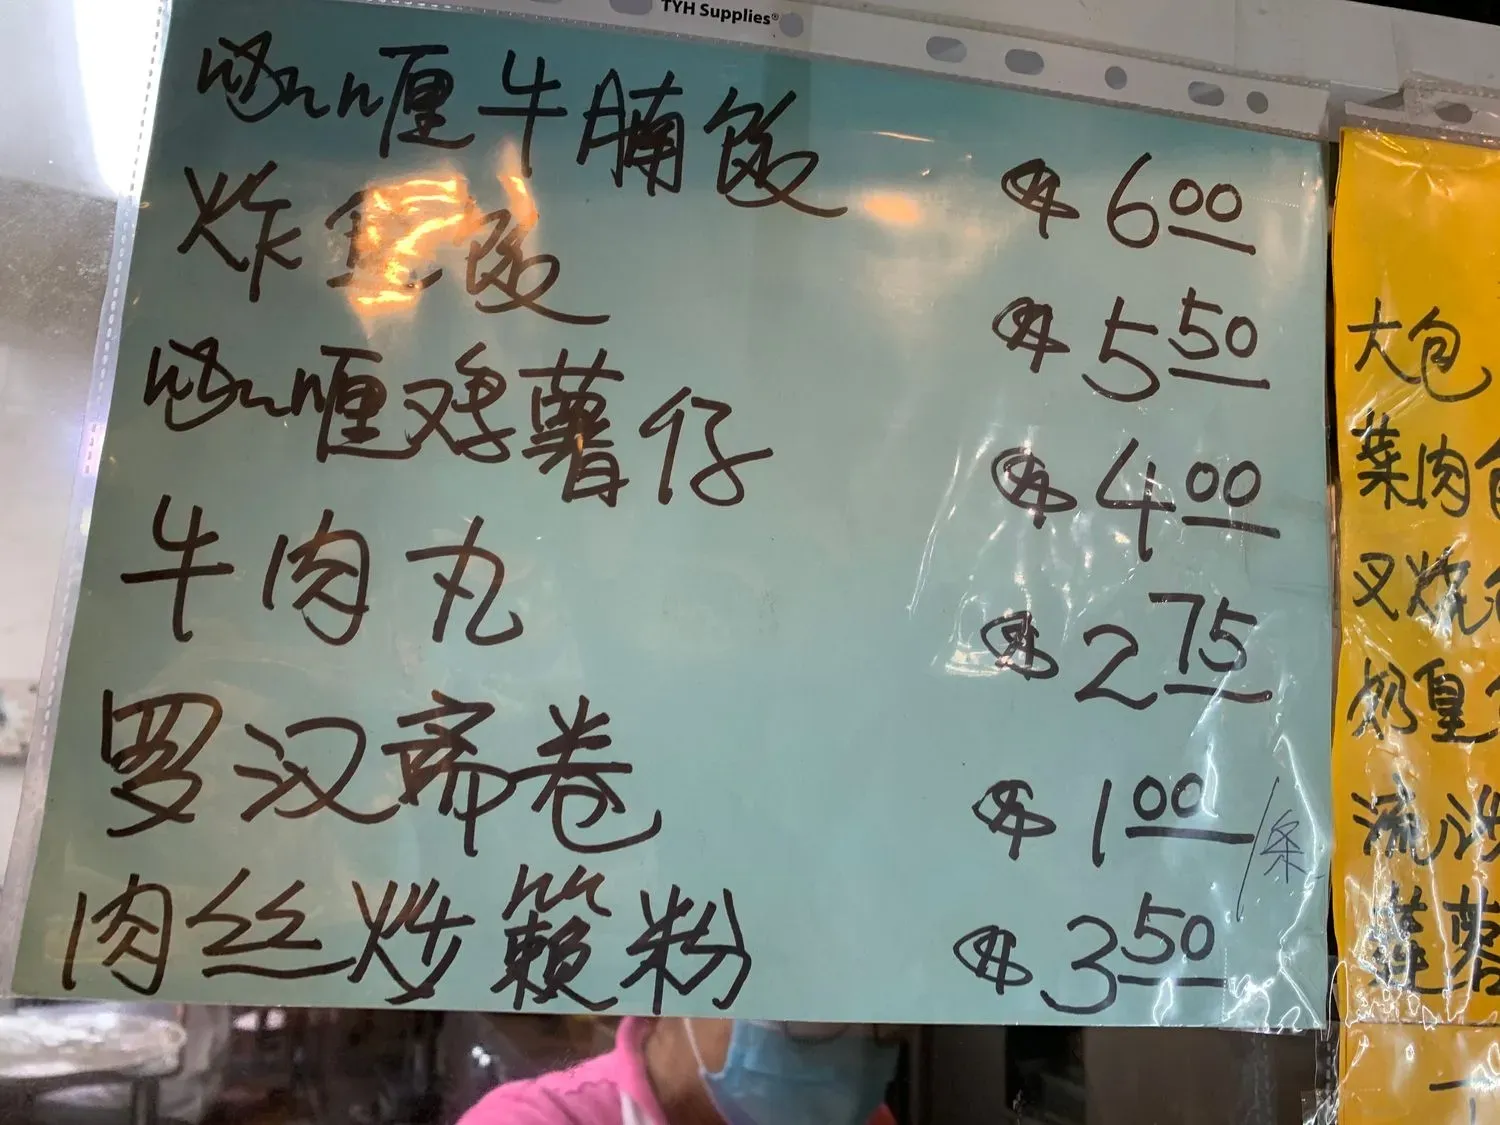 TYH Supplies®
咖喱牛腩饭 $6.00
炸鱼饭 $5.50
咖喱鸡薯仔 $4.00
牛肉丸 $2.75
罗汉斋卷 $1.00/条
肉丝炒籁粉 $3.50
大包
菜肉包
叉烧
奶皇
流沙
莲蓉